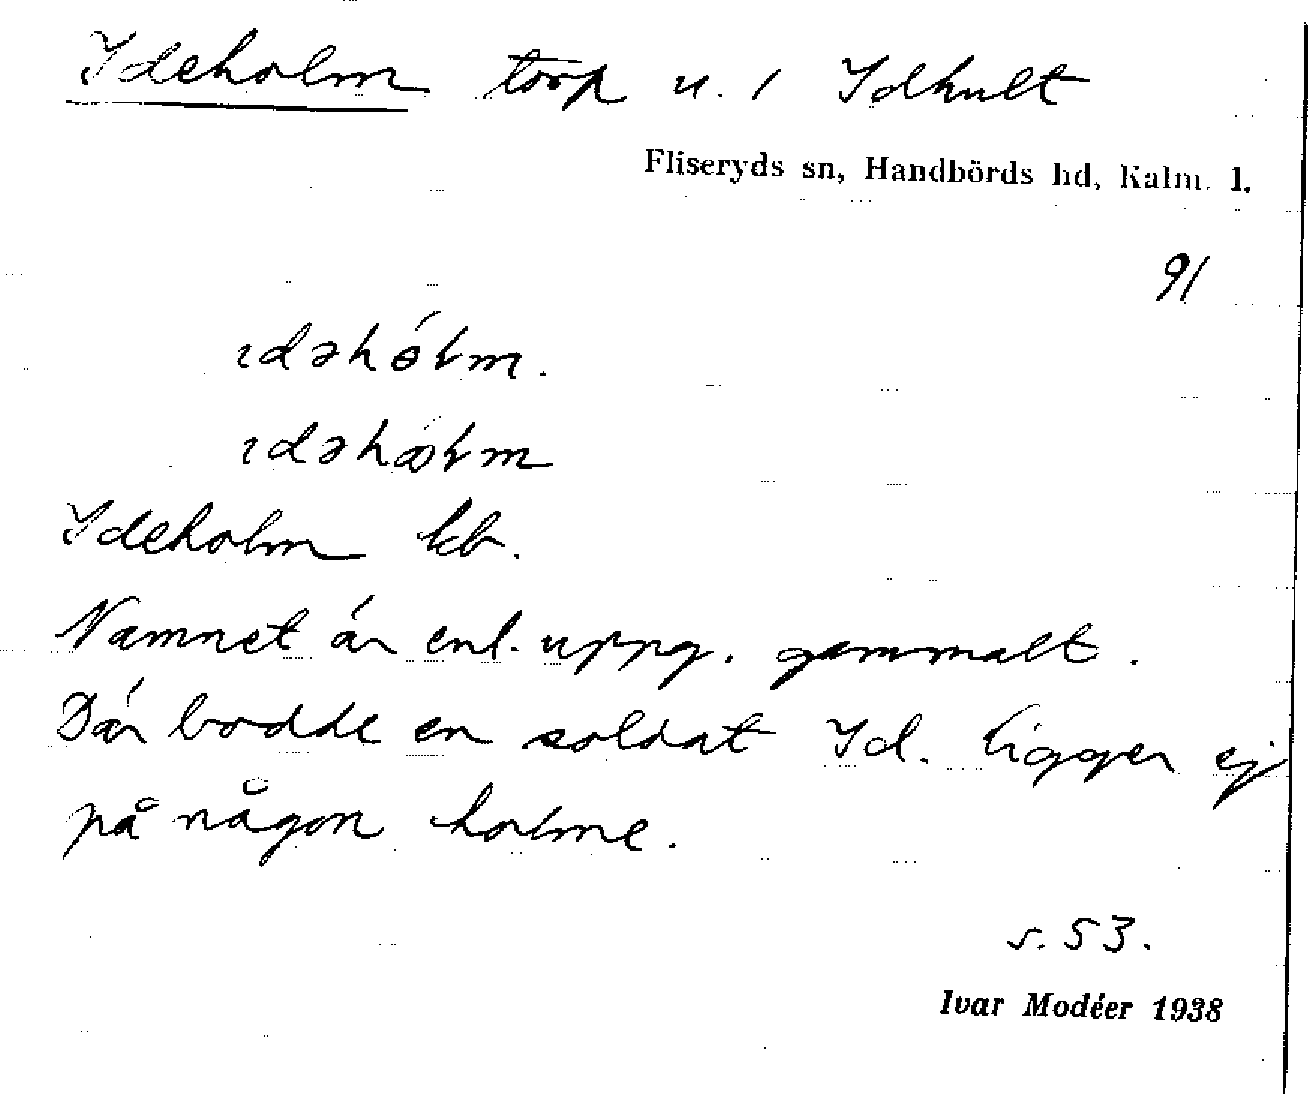 Ideholm torp u. 1 Idhult
Fliseryds sn, Handbörds hd, Kalm. l.
91
ıdəhólm.
ıdəhólm
Ideholm kb.
Namnet är enl. uppg. gammalt.
Där bodde en soldat Id. ligger ej
på någon holme.
s. 53.
Ivar Modéer 1938